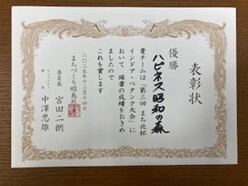 表彰状
優勝
ハピネス昭和の森
貴チームは「第三回 まち社杯
インドア・ペタンク大会」に
おいて 頭書の成績をおさめ
ましたので
これを賞します
二〇二五年十二月十四日
まちづくり昭島社
委員長
宮田二朗
中澤忠雄